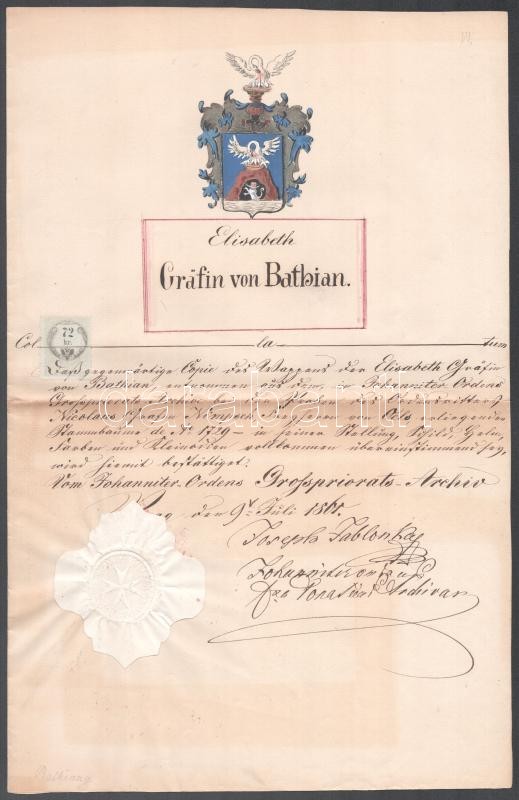 Elisabeth
Gräfin von Bathian.
72
kr.
Col la tum
Daß gegenwärtige Copie des Wappens der Elisabeth Gräfin
von Bathian, entnommen aus dem, im Johanniter Ordens
Grosspriorats-Archive bei den Proben des Ordensritters
Nicolaus Grafen
Stammbaume de a 1729 – in seiner Stellung, Schild, Helm,
Farben und Kleinoden vollkommen übereinstimmend sey,
wird hiemit bestättiget.
Vom Johanniter-Ordens Grosspriorats-Archiv
Prag den 9 Juli 1861.
Joseph Jablonsky
Johanniter
Archivar
darabanth
Bathiany